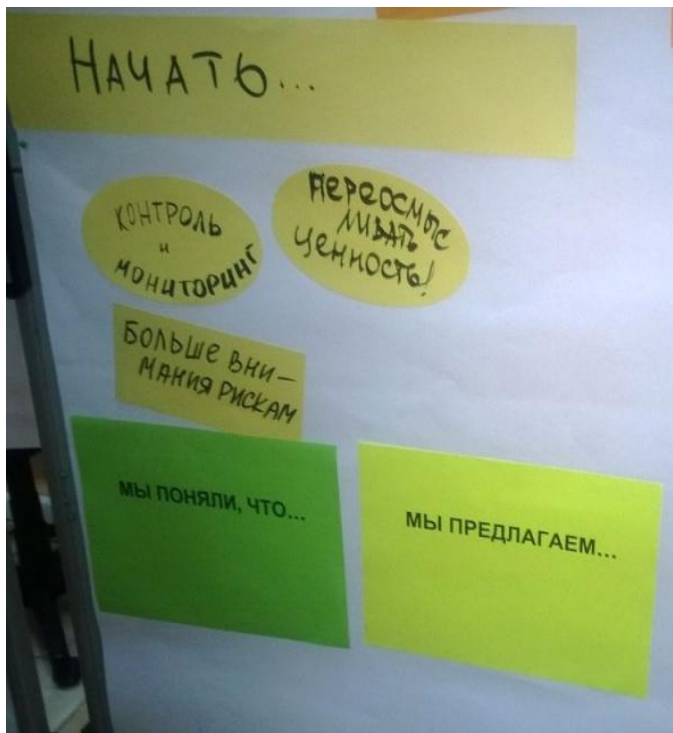 НАЧАТЬ...
КОНТРОЛЬ
и
МОНИТОРИНГ
ПЕРЕОСМЫС
ЛИВАТЬ
ЦЕННОСТЬ!
БОЛЬШЕ ВНИ-
МАНИЯ РИСКАМ
МЫ ПОНЯЛИ, ЧТО...
МЫ ПРЕДЛАГАЕМ...